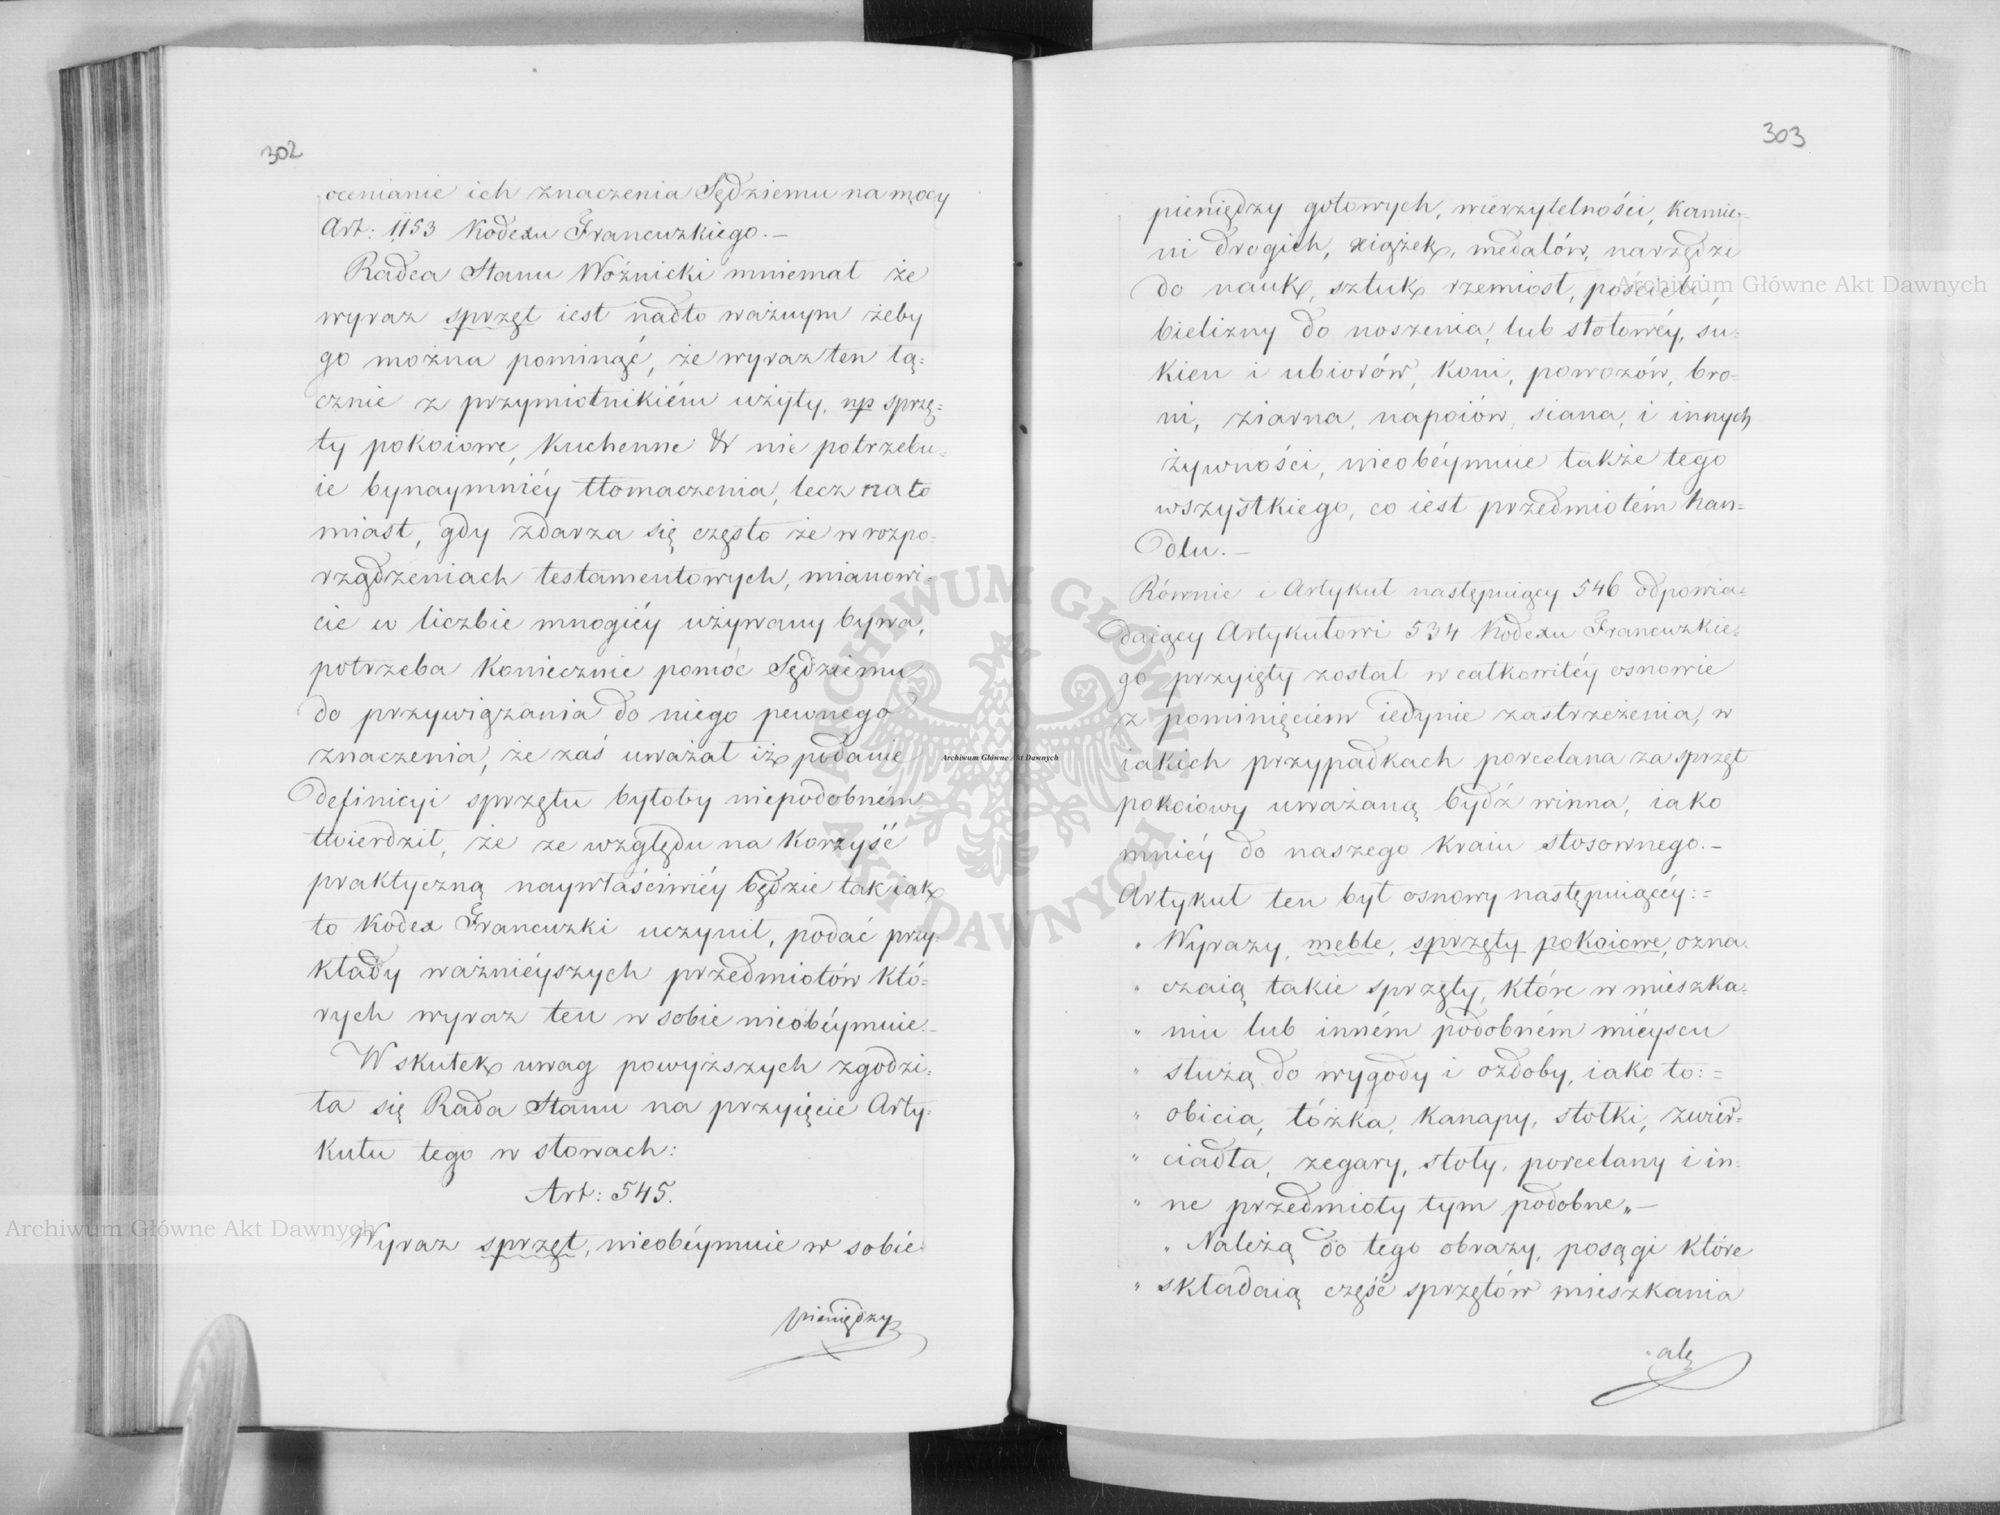 302
ocenianie ich znaczenia Sędziemu na mocy
Art: 1153 Kodexu Francuzkiego.—
Radca Stanu Woźnicki mniemał że
wyraz sprzęt iest nadto ważnym żeby
go można pominąć, że wyraz ten łą=
cznie z przymiotnikiém użyty, np sprzę=
ty pokoiowe, kuchenne & nie potrzebu=
ie bynaymniéy tłomaczenia, lecz nato
miast, gdy zdarza się często że w rozpo=
rządzeniach testamentowych, mianowi=
cie w liczbie mnogiéy używany bywa,
potrzeba koniecznie pomóc Sędziemu
do przywiązania do niego pewnego
znaczenia, że zaś uważał iż podanie
definicyi sprzętu byłoby niepodobném
twierdził, że ze względu na korzyść
praktyczną naywłaściwiéy będzie tak iak
to Kodex Francuzki uczynił, podać przy=
kłady ważniéyszych przedmiotów któ=
rych wyraz ten w sobie nieobéymuie.—
W skutek uwag powyższych zgodzi=
ła się Rada Stanu na przyięcie Arty=
kułu tego w słowach:
Art: 545.
Wyraz sprzęt, nieobéymuie w sobie
pieniędzy
303
pieniędzy gotowych, wierzytelności, kamie=
ni drogich, xiążek, medalów, narzędzi
do nauk, sztuk rzemiosł, pościeli,
bielizny do noszenia, lub stołowéy, su=
kien i ubiorów, koni, powozów, bro=
ni, ziarna, napoiów, siana, i innych
żywności, nieobéymuie także tego
wszystkiego, co iest przedmiotém han=
dlu.—
Równie i Artykuł następuiący 546 odpowia=
daiący Artykułowi 534 Kodexu Francuzkie=
go przyięty został w całkowitéy osnowie
z pominięciem iedynie zastrzeżenia, w
iakich przypadkach porcelana za sprzęt
pokoiowy uważaną bydź winna, iako
mniéy do naszego kraiu stosownego.—
Artykuł ten był osnowy następuiącéy:=
" Wyrazy, meble, sprzęty pokoiowe, ozna=
" czaią takie sprzęty, które w mieszka=
" niu lub inném podobném miéyscu
" służą do wygody i ozdoby, iako to:=
" obicia, łóżka, kanapy, stołki, zwier=
" ciadła, zegary, stoły, porcelany i in=
" ne przedmioty tym podobne„—
" Należą do tego obrazy, posągi które
" składaią część sprzętów mieszkania
" ale
Archiwum Główne Akt Dawnych
Archiwum Główne Akt Dawnych
Archiwum Główne Akt Dawnych
ARCHIWUM GŁÓWNE AKT DAWNYCH